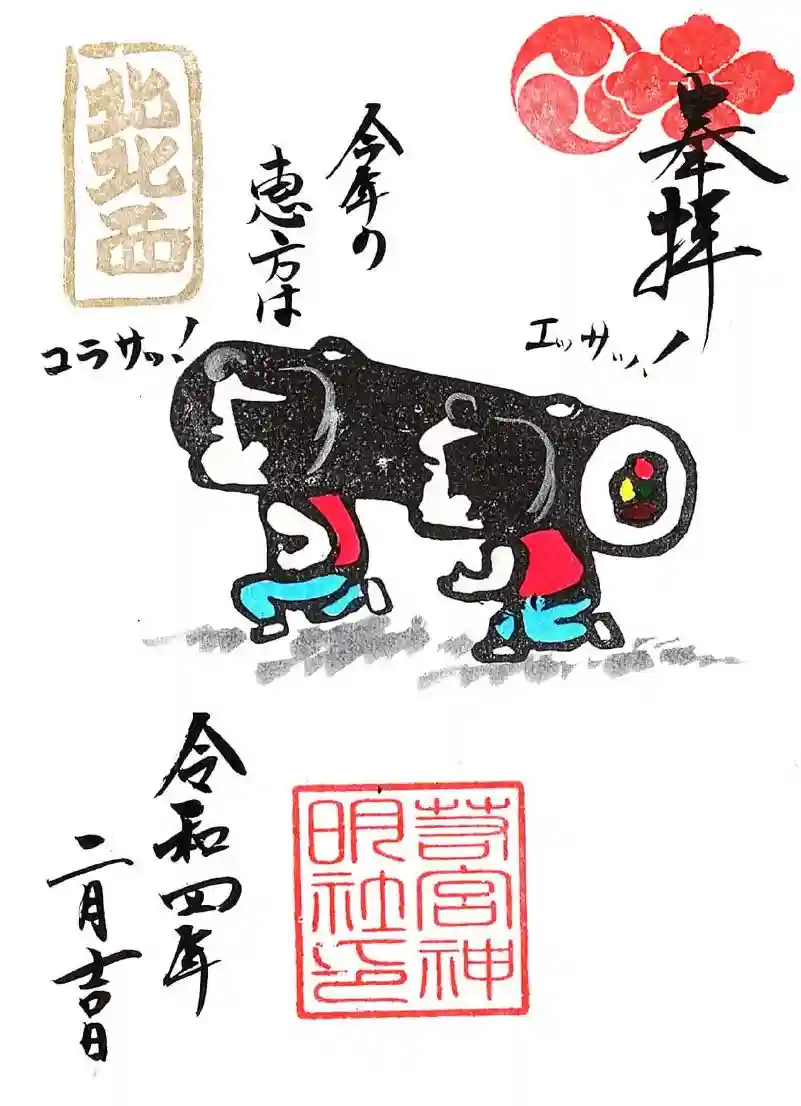 奉拝
今年の
恵方は
北北西
エッサッ!
コラサッ!
若宮神
明社印
令和四年
二月吉日